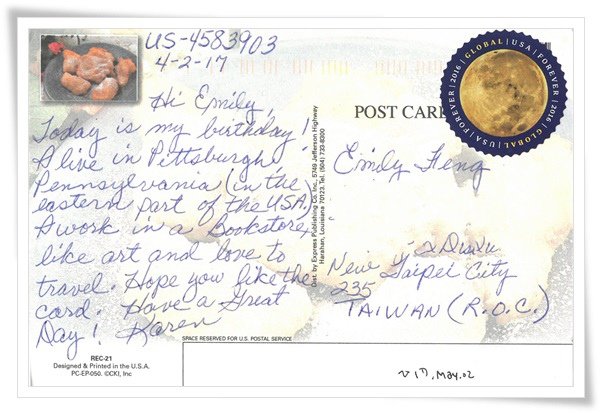 US-4583903
4-2-17
Hi Emily,
Today is my birthday!
I live in Pittsburgh
Pennsylvania (in the
eastern part of the USA)
I work in a Bookstore,
like art and love to
travel. Hope you like the
card. Have a Great
Day! Karen
REC-21
Designed & Printed in the U.S.A.
PC-EP-050. ©CKI, Inc
SPACE RESERVED FOR U.S. POSTAL SERVICE
Dist. by Express Publishing Co. Inc., 5749 Jefferson Highway
Harahan, Louisiana 70123. Tel. (504) 733-8300
POST CAR
GLOBAL | USA | FOREVER | 2016 | GLOBAL | USA | FOREVER | 2016
Emily Feng
New Taipei City
235
TAIWAN (R.O.C.)
May.02